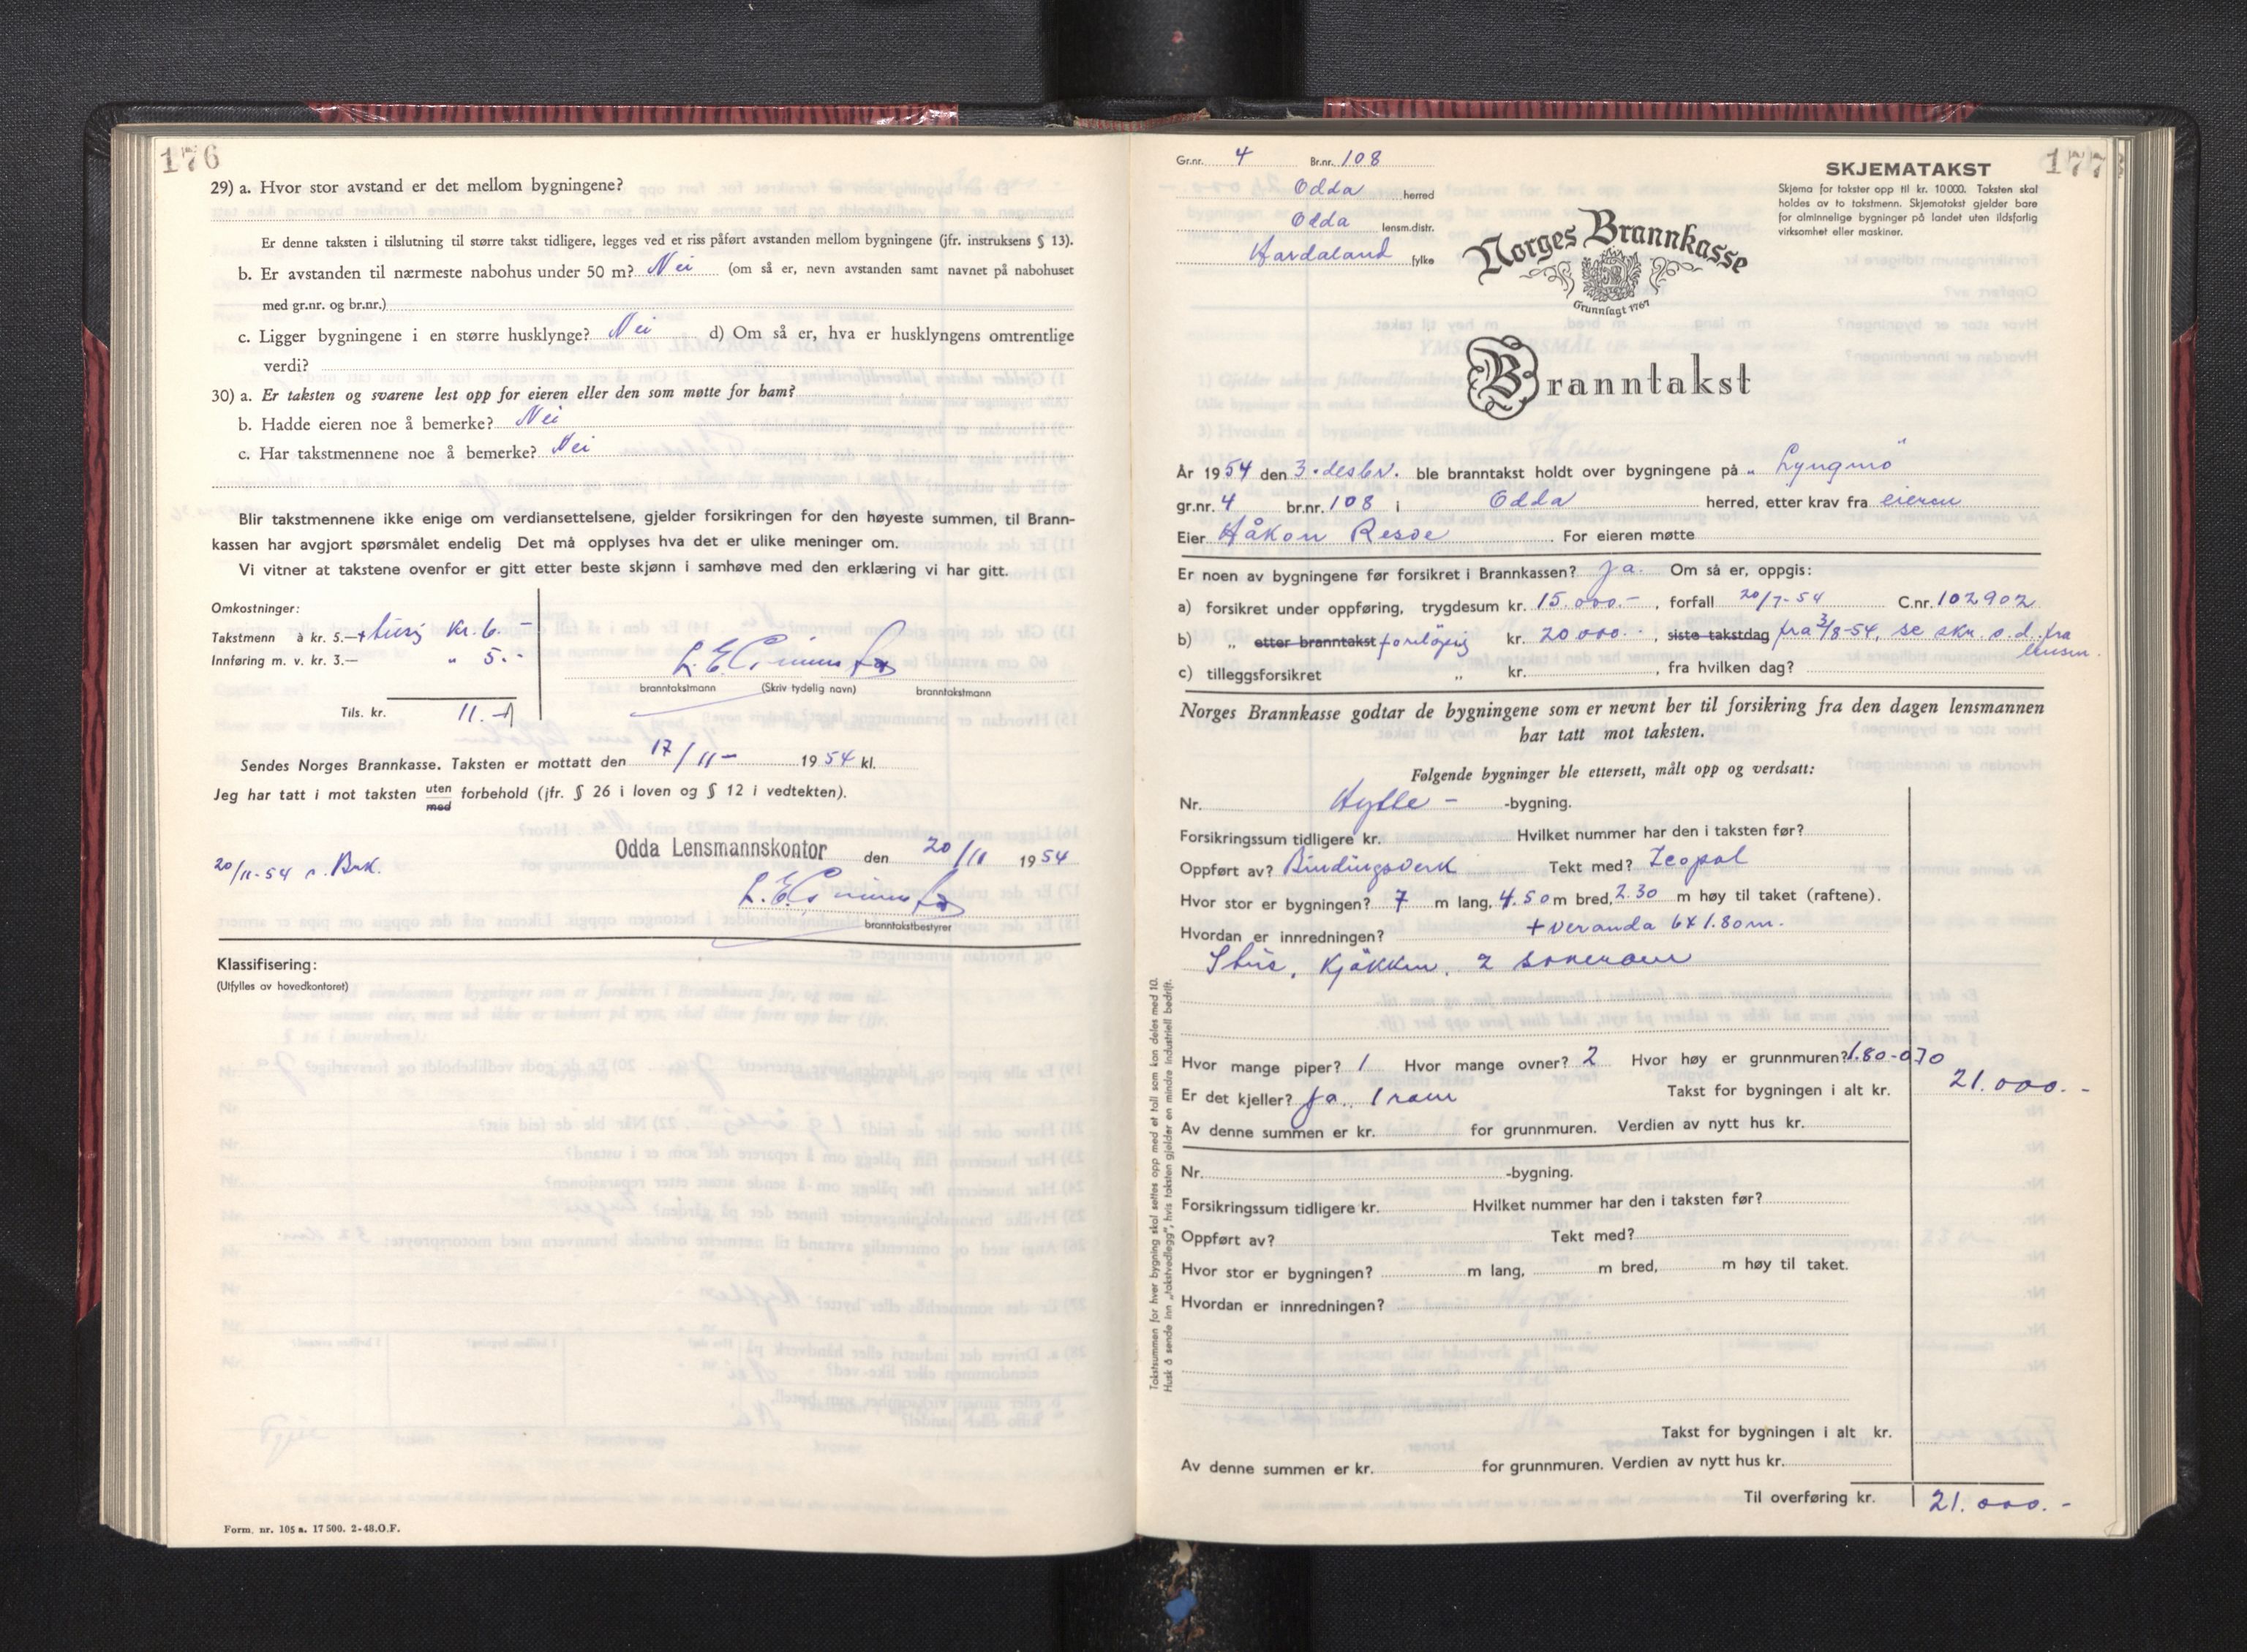 176
29) a. Hvor stor avstand er det mellom bygningene?
Er denne taksten i tilslutning til større takst tidligere, legges ved et riss påført avstanden mellom bygningene (jfr. instruksens § 13).
b. Er avstanden til nærmeste nabohus under 50 m? Nei (om så er, nevn avstanden samt navnet på nabohuset
med gr.nr. og br.nr.)
c. Ligger bygningene i en større husklynge? Nei d) Om så er, hva er husklyngens omtrentlige
verdi?
30) a. Er taksten og svarene lest opp for eieren eller den som møtte for ham?
b. Hadde eieren noe å bemerke? Nei
c. Har takstmennene noe å bemerke? Nei
Blir takstmennene ikke enige om verdiansettelsene, gjelder forsikringen for den høyeste summen, til Brann-
kassen har avgjort spørsmålet endelig Det må opplyses hva det er ulike meninger om.
Vi vitner at takstene ovenfor er gitt etter beste skjønn i samhøve med den erklæring vi har gitt.
Omkostninger:
Takstmenn à kr. 5.— Kr. 6. -
Innføring m. v. kr. 3.— " 5. -
branntakstmann (Skriv tydelig navn) branntakstmann
Tils. kr. 11. -
Sendes Norges Brannkasse. Taksten er mottatt den 17/11 - 1954 kl.
Jeg har tatt i mot taksten uten forbehold (jfr. § 26 i loven og § 12 i vedtekten).
med
Odda Lensmannskontor den 20/11 1954
20/11-54 Brk.
branntakstbestyrer
Klassifisering:
(Utfylles av hovedkontoret)
Form. nr. 105 a. 17 500. 2-48. O.F.
177
Gr.nr. 4 Br.nr. 108
Odda herred
Odda lensm.distr.
Hordaland fylke
SKJEMATAKST
Skjema for takster opp til kr. 10000. Taksten skal
holdes av to takstmenn. Skjematakst gjelder bare
for alminnelige bygninger på landet uten ildsfarlig
virksomhet eller maskiner.
Norges Brannkasse
Grunnlagt 1767
Branntakst
År 1954 den 3. desbr. ble branntakst holdt over bygningene på „ Lyngmö
gr.nr. 4 br.nr. 108 i Odda herred, etter krav fra eieren
Eier Håkon Resoe For eieren møtte
Er noen av bygningene før forsikret i Brannkassen? Ja. Om så er, oppgis:
a) forsikret under oppføring, trygdesum kr. 15.000.- , forfall 20/7-54 C.nr. 102902
b) „ etter branntakst foreløpig kr. 20000.- , siste takstdag fra 3/8-54, se skr. s.d. fra
c) tilleggsforsikret „ kr. , fra hvilken dag?
Norges Brannkasse godtar de bygningene som er nevnt her til forsikring fra den dagen lensmannen
har tatt mot taksten.
Følgende bygninger ble ettersett, målt opp og verdsatt:
Nr. Hytte - -bygning.
Forsikringssum tidligere kr. Hvilket nummer har den i taksten før?
Oppført av? Bindingsverk Tekt med? Icopal
Hvor stor er bygningen? 7 m lang, 4.50 m bred, 2.30 m høy til taket (raftene).
Hvordan er innredningen? + veranda 6 x 1.80 m.
Stue, Kjøkken, 2 soverom
Hvor mange piper? 1 Hvor mange ovner? 2 Hvor høy er grunnmuren? 1.80-0.70
Er det kjeller? Ja. 1 rom Takst for bygningen i alt kr. 21.000.-
Av denne summen er kr. for grunnmuren. Verdien av nytt hus kr.
Nr. -bygning.
Forsikringssum tidligere kr. Hvilket nummer har den i taksten før?
Oppført av? Tekt med?
Hvor stor er bygningen? m lang, m bred, m høy til taket.
Hvordan er innredningen?
Takst for bygningen i alt kr.
Av denne summen er kr. for grunnmuren. Verdien av nytt hus kr.
Til overføring kr. 21.000.-
Takstsummen for hver bygning skal settes opp med et tall som kan deles med 10.
Husk å sende inn „takstvedlegg", hvis taksten gjelder en mindre industriell bedrift.